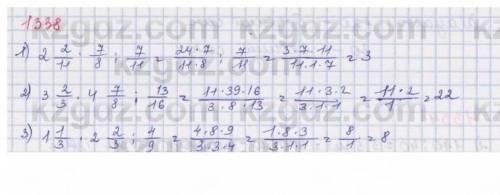 1338
1) 2 2/11 · 7/8 : 7/11 = 24·7/11·8 : 7/11 = 3·7·11/11·1·7 = 3
2) 3 2/3 · 4 7/8 : 13/16 = 11·39·16/3·8·13 = 11·3·2/3·1·1 = 11·2/1 = 22
3) 1 1/3 · 2 2/3 : 4/9 = 4·8·9/3·3·4 = 1·8·3/3·1·1 = 8/1 = 8